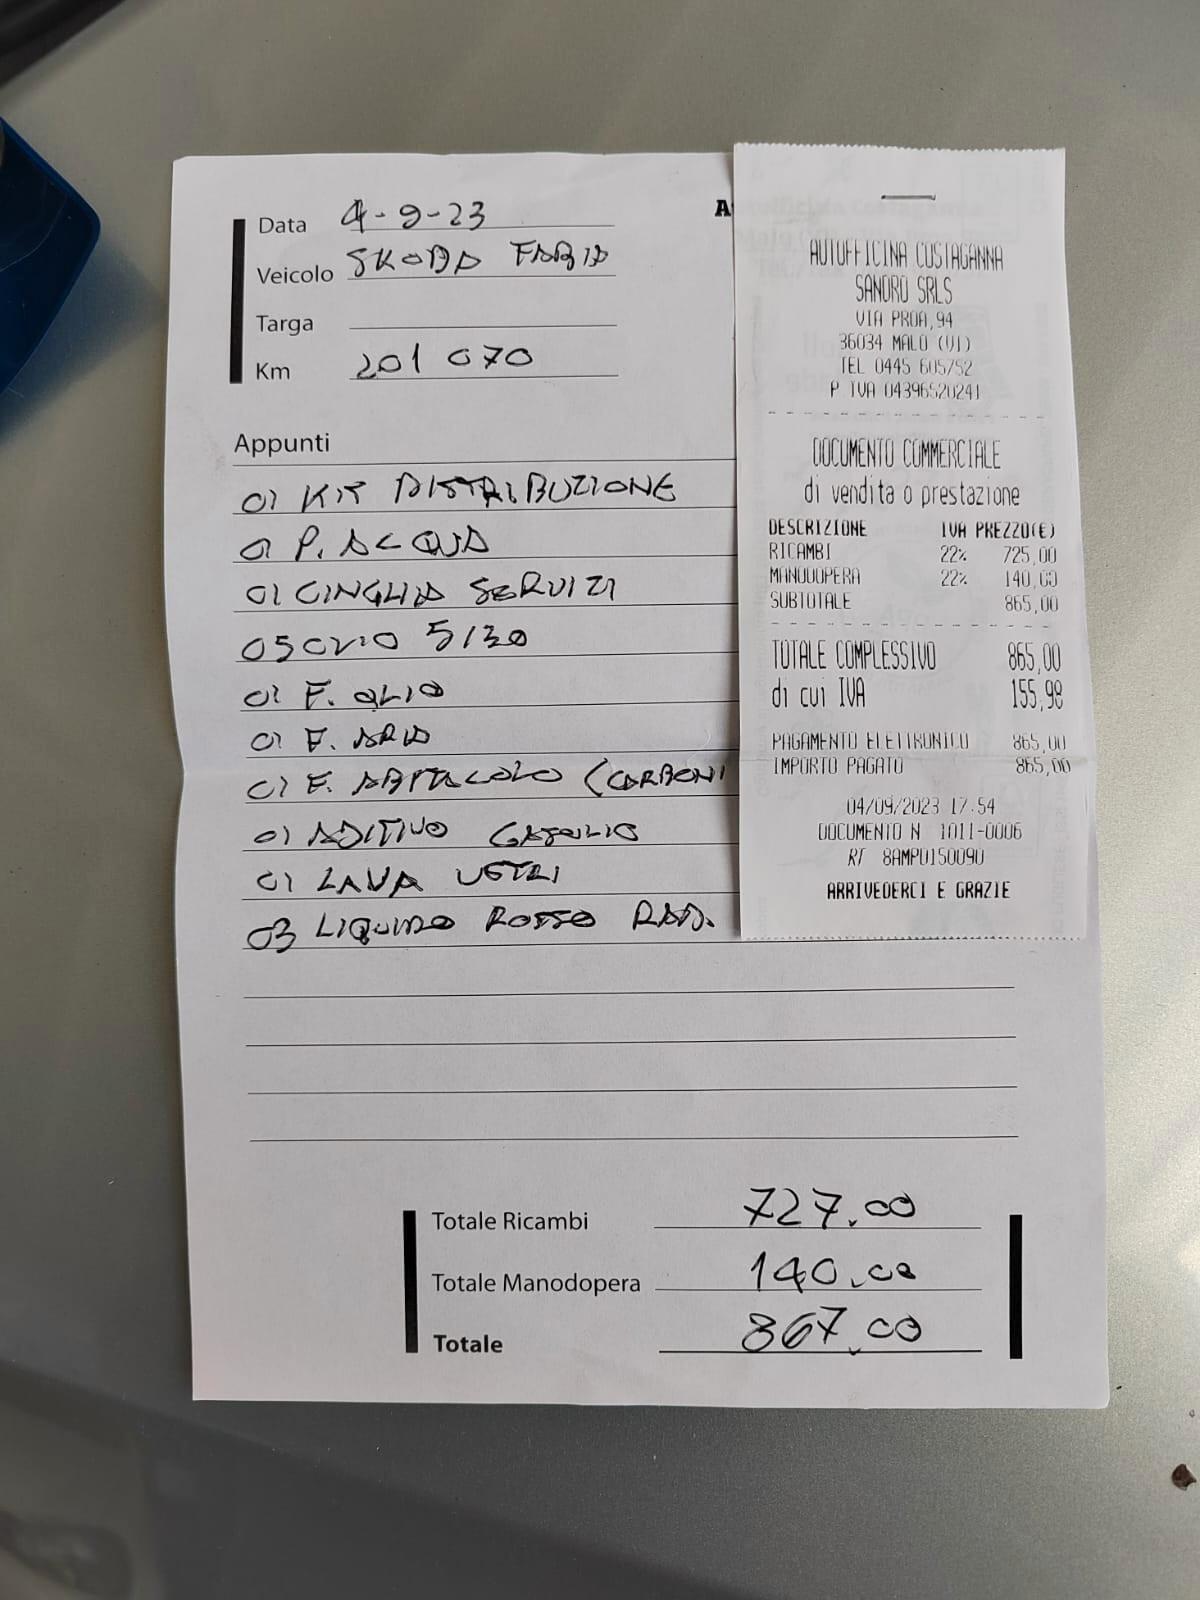 Data 4-9-23
Veicolo SKODA FABIA
Targa
Km 201 070
Appunti
01 KIT DISTRIBUZIONE
01 P. ACQUA
01 CINGHIA SERVIZI
05 OLIO 5/30
01 F. OLIO
01 F. ARIA
01 F. ABITACOLO (CARBONI
01 ADITIVO GASOLIO
01 LAVA VETRI
03 LIQUIDO ROSSO RAD.
Totale Ricambi 727.00
Totale Manodopera 140.00
Totale 867.00
AUTOFFICINA COSTAGANNA
SANDRO SRLS
VIA PROA,94
36034 MALO (VI)
TEL 0445 605752
P IVA 04396520241
DOCUMENTO COMMERCIALE
di vendita o prestazione
DESCRIZIONE IVA PREZZO(€)
RICAMBI 22% 725,00
MANODOPERA 22% 140,00
SUBTOTALE 865,00
TOTALE COMPLESSIVO 865,00
di cui IVA 155,98
PAGAMENTO ELETTRONICO 865,00
IMPORTO PAGATO 865,00
04/09/2023 17:54
DOCUMENTO N 1011-0006
RT 8AMPD150090
ARRIVEDERCI E GRAZIE